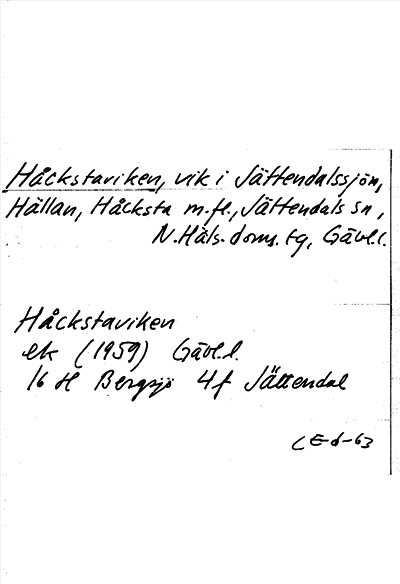 Håckstaviken, vik i Jättendalssjön,
Hällan, Håcksta m.fl., Jättendals sn,
N.Häls.doms.tg, Gävl.l.
Håckstaviken
ek (1959) Gävl.l.
16 H Bergsjö 4f Jättendal
CE-d-63